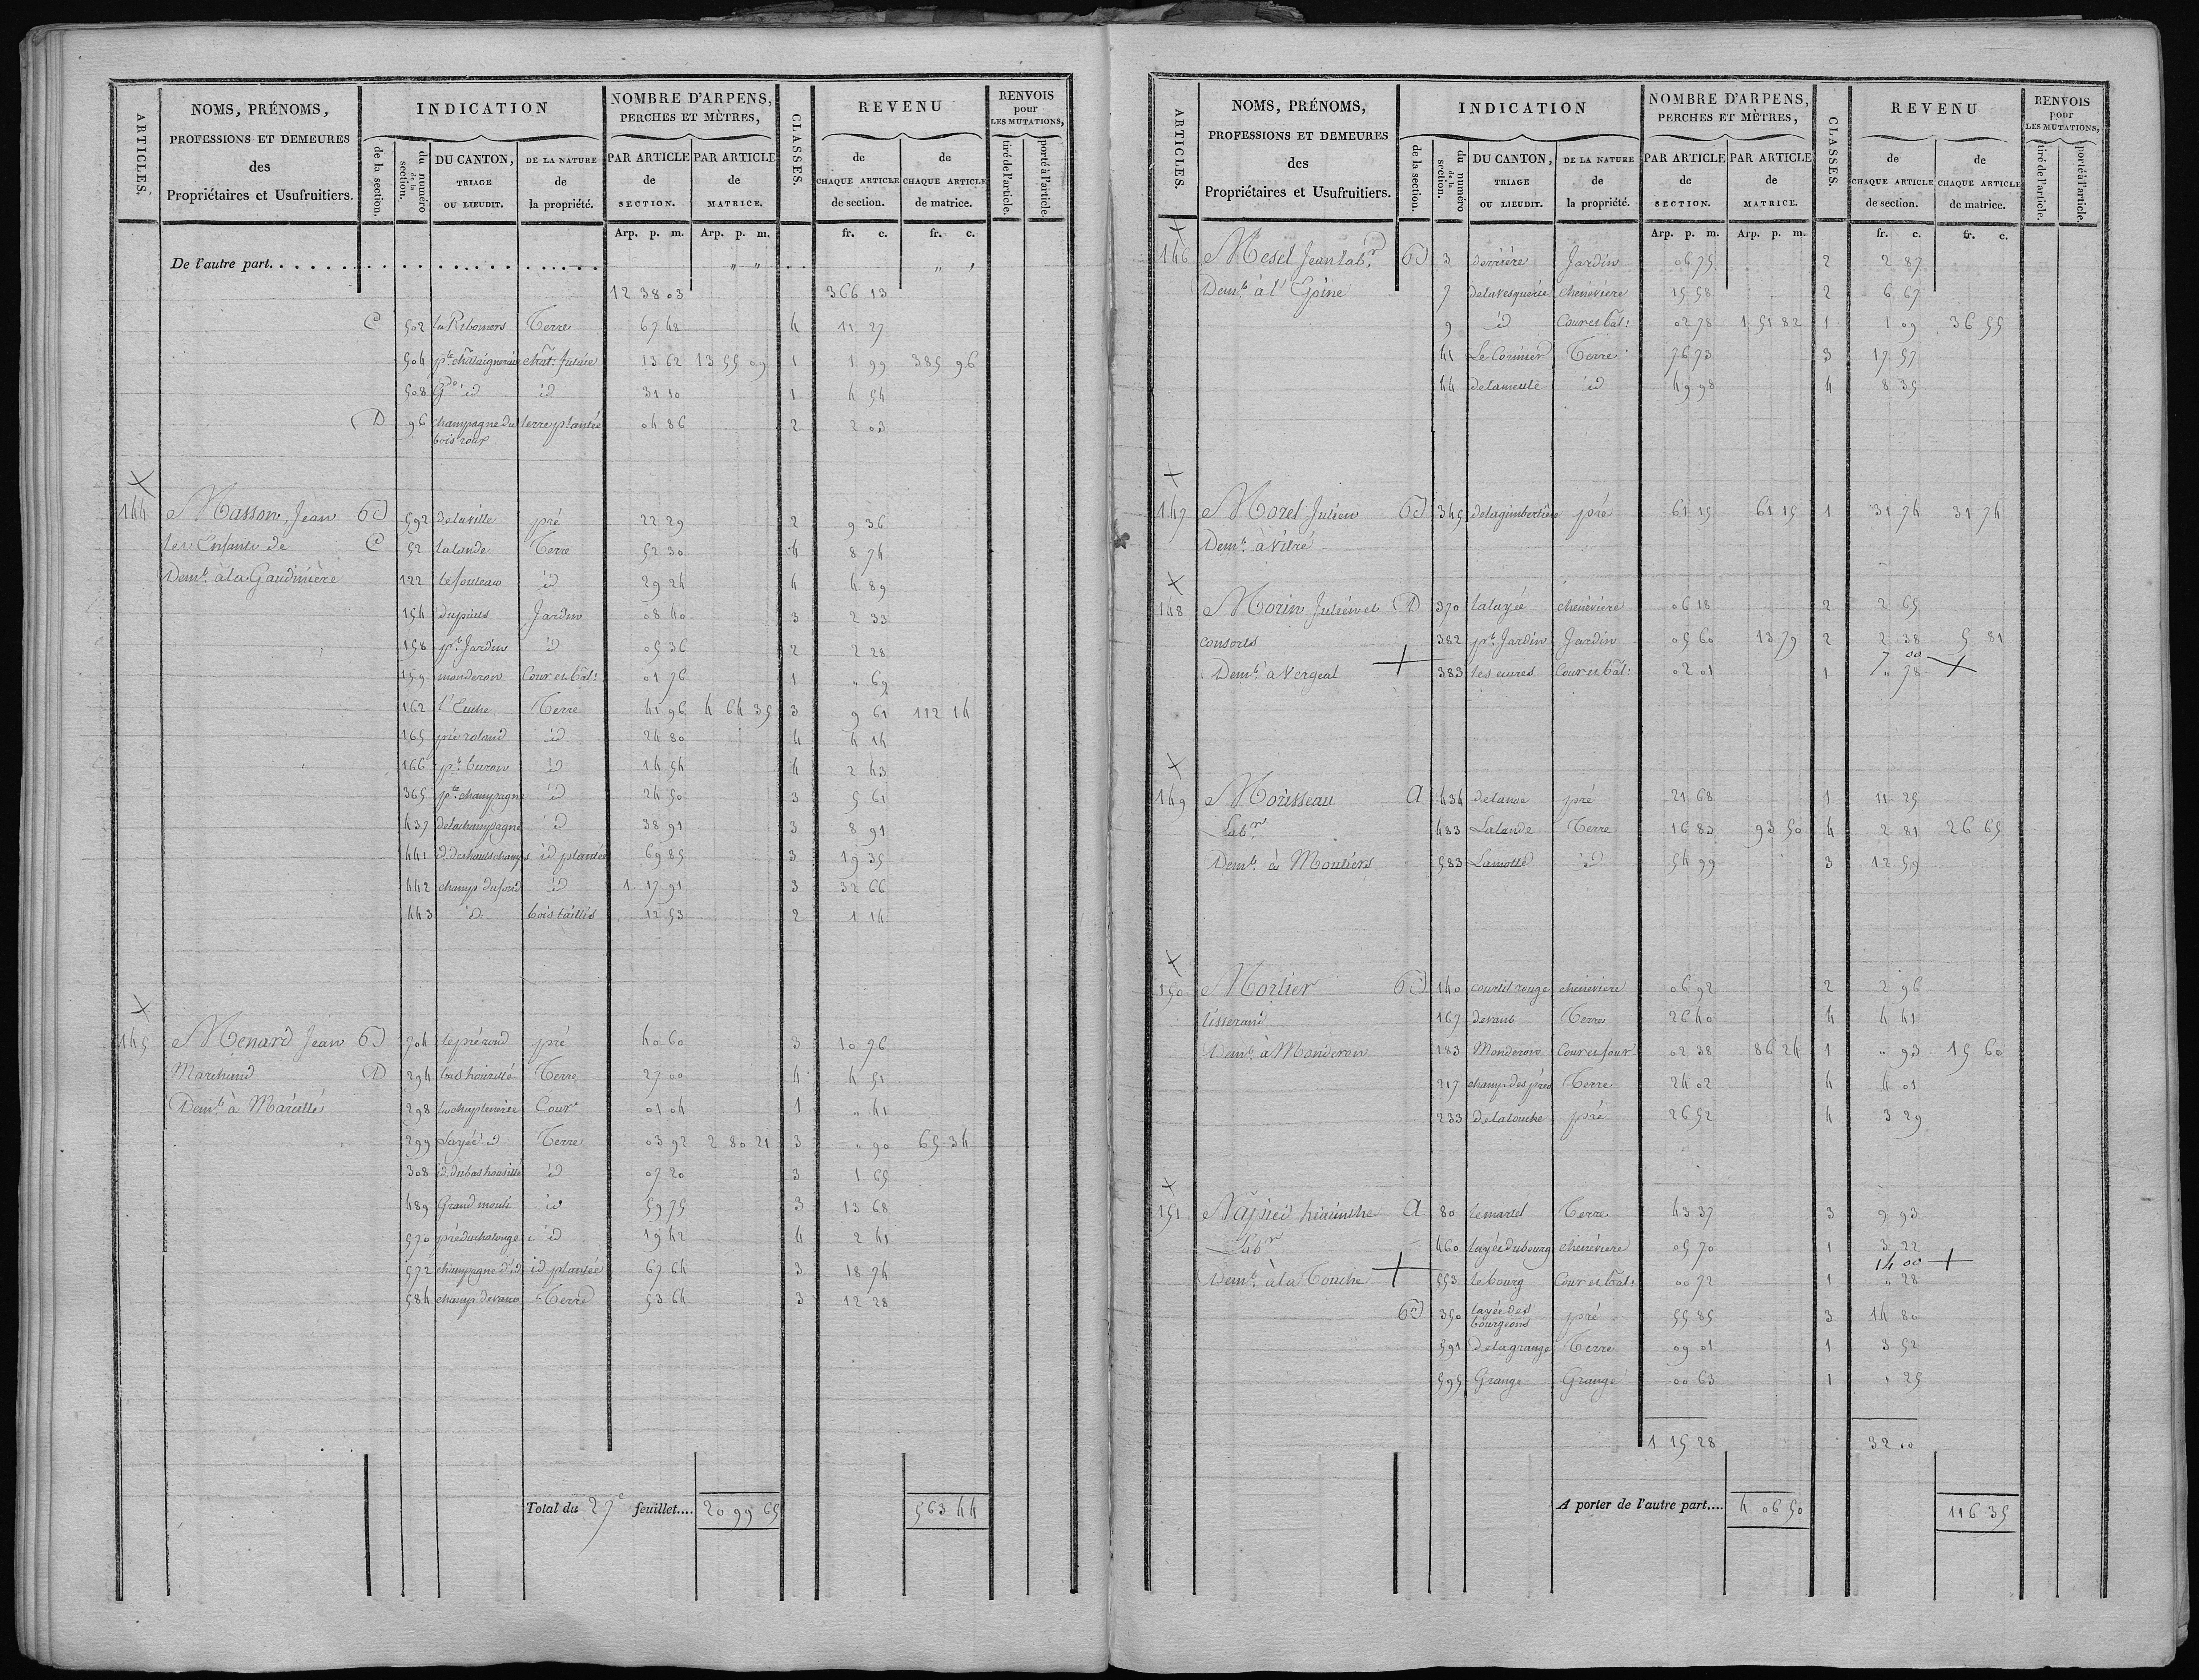 ARTICLES.
NOMS, PRÉNOMS,
PROFESSIONS ET DEMEURES
des
Propriétaires et Usufruitiers.
INDICATION
de la section.
du numéro de la section.
DU CANTON, TRIAGE OU LIEUDIT.
DE LA NATURE de la propriété.
NOMBRE D'ARPENS, PERCHES ET MÈTRES,
PAR ARTICLE de SECTION.
PAR ARTICLE de MATRICE.
CLASSES.
REVENU
de CHAQUE ARTICLE de section.
de CHAQUE ARTICLE de matrice.
RENVOIS pour LES MUTATIONS,
tiré de l'article.
porté à l'article.
Arp. p. m. Arp. p. m. fr. c. fr. c.
De l'autre part. . . . . . . . . . . . . . . . . . " " " "
12 38 03 366 13
C 502 Terre 67 48 4 11 27
504 pte chataigneraie chat. futaie 13 62 13 55 09 1 1 99 385 96
508 Gde id id 31 10 1 4 54
D 96 champagne du terre plantée 04 86 2 2 03
bois roux
144 Masson, Jean B 592 delaville pré 22 29 2 9 36
les Enfants de C 52 lalande Terre 52 30 4 8 74
Demt. à la Gaudinière 122 id 29 24 4 4 89
154 dupuits Jardin 08 40 3 2 33
158 pt. Jardin id 05 36 2 2 28
159 monderon Cour et bât: 01 76 1 " 69
162 Terre 41 96 4 64 35 3 9 61 112 14
165 pré roland id 24 80 4 4 14
166 pt. buron id 14 54 4 2 43
365 pte. champagne id 24 50 3 5 61
437 delachampagne id 38 91 3 8 91
441 id. des hauts champs id plantée 69 85 3 19 35
442 champ du four id 1 17 91 3 32 66
443 id. bois taillis 12 53 2 1 14
145 Menard Jean B 704 le pré rond pré 40 60 3 10 76
Marchand D 294 bas houssillé Terre 27 00 4 4 51
Demt. à Marcillé 298 Cour 01 04 1 " 41
299 Layée id Terre 03 92 2 80 21 3 " 90 65 34
308 id. du bas houssillé id 07 20 3 1 65
489 Grand id 59 75 3 13 68
570 id 19 42 4 2 41
572 champagne d'id id plantée 67 64 3 18 74
584 champ devant Terre 53 64 3 12 28
Total du 27e feuillet.... 20 99 65 563 44
ARTICLES.
NOMS, PRÉNOMS,
PROFESSIONS ET DEMEURES
des
Propriétaires et Usufruitiers.
INDICATION
de la section.
du numéro de la section.
DU CANTON, TRIAGE OU LIEUDIT.
DE LA NATURE de la propriété.
NOMBRE D'ARPENS, PERCHES ET MÈTRES,
PAR ARTICLE de SECTION.
PAR ARTICLE de MATRICE.
CLASSES.
REVENU
de CHAQUE ARTICLE de section.
de CHAQUE ARTICLE de matrice.
RENVOIS pour LES MUTATIONS,
tiré de l'article.
porté à l'article.
Arp. p. m. Arp. p. m. fr. c. fr. c.
146 Mesel Jean labr. B 3 derrière Jardin 06 75 2 2 87
Demt. à l'Epine 7 chenevière 15 58 2 6 67
9 id Cour et bât: 02 78 1 51 82 1 1 09 36 55
41 Le Cormier Terre 76 73 3 17 57
44 delameule id 49 98 4 8 35
147 Morel Julien B 345 delagimbertière pré 61 15 61 15 1 31 74 31 74
Demt. à Vitré
148 Morin Julien et D 370 lalayée chenevière 06 18 2 2 65
consorts 382 pt. Jardin Jardin 05 60 13 79 2 2 38 5 81
7 00
Demt. à Vergeal + 383 Cour et bât: 02 01 1 " 78 +
149 Morisseau A 434 pré 21 68 1 11 25
Labr. 483 Lalande Terre 16 83 93 50 4 2 81 26 65
Demt. à Moutiers 583 Lamotte id 54 99 3 12 59
150 Mortier B 140 courtil rouge chenevière 06 92 2 2 96
tisserand 167 devant Terre 26 40 4 4 41
Demt. à Monderon 183 Monderon Cour et four 02 38 86 24 1 " 93 15 60
217 champ des prés Terre 24 02 4 4 01
233 delatouche pré 26 52 4 3 29
151 hiacinthe A 80 lemartel Terre 43 37 3 9 93
Labr 460 layée du bourg chenevière 05 70 1 3 22
14 00 +
Demt. à la Touche + 553 le bourg Cour et bât: 00 72 1 " 28
B 350 layée des bourgeons pré 55 85 3 14 80
591 delagrange Terre 09 01 1 3 52
595 Grange Grange 00 63 1 " 25
1 15 28 32 00
A porter de l'autre part.... 4 06 50 116 35